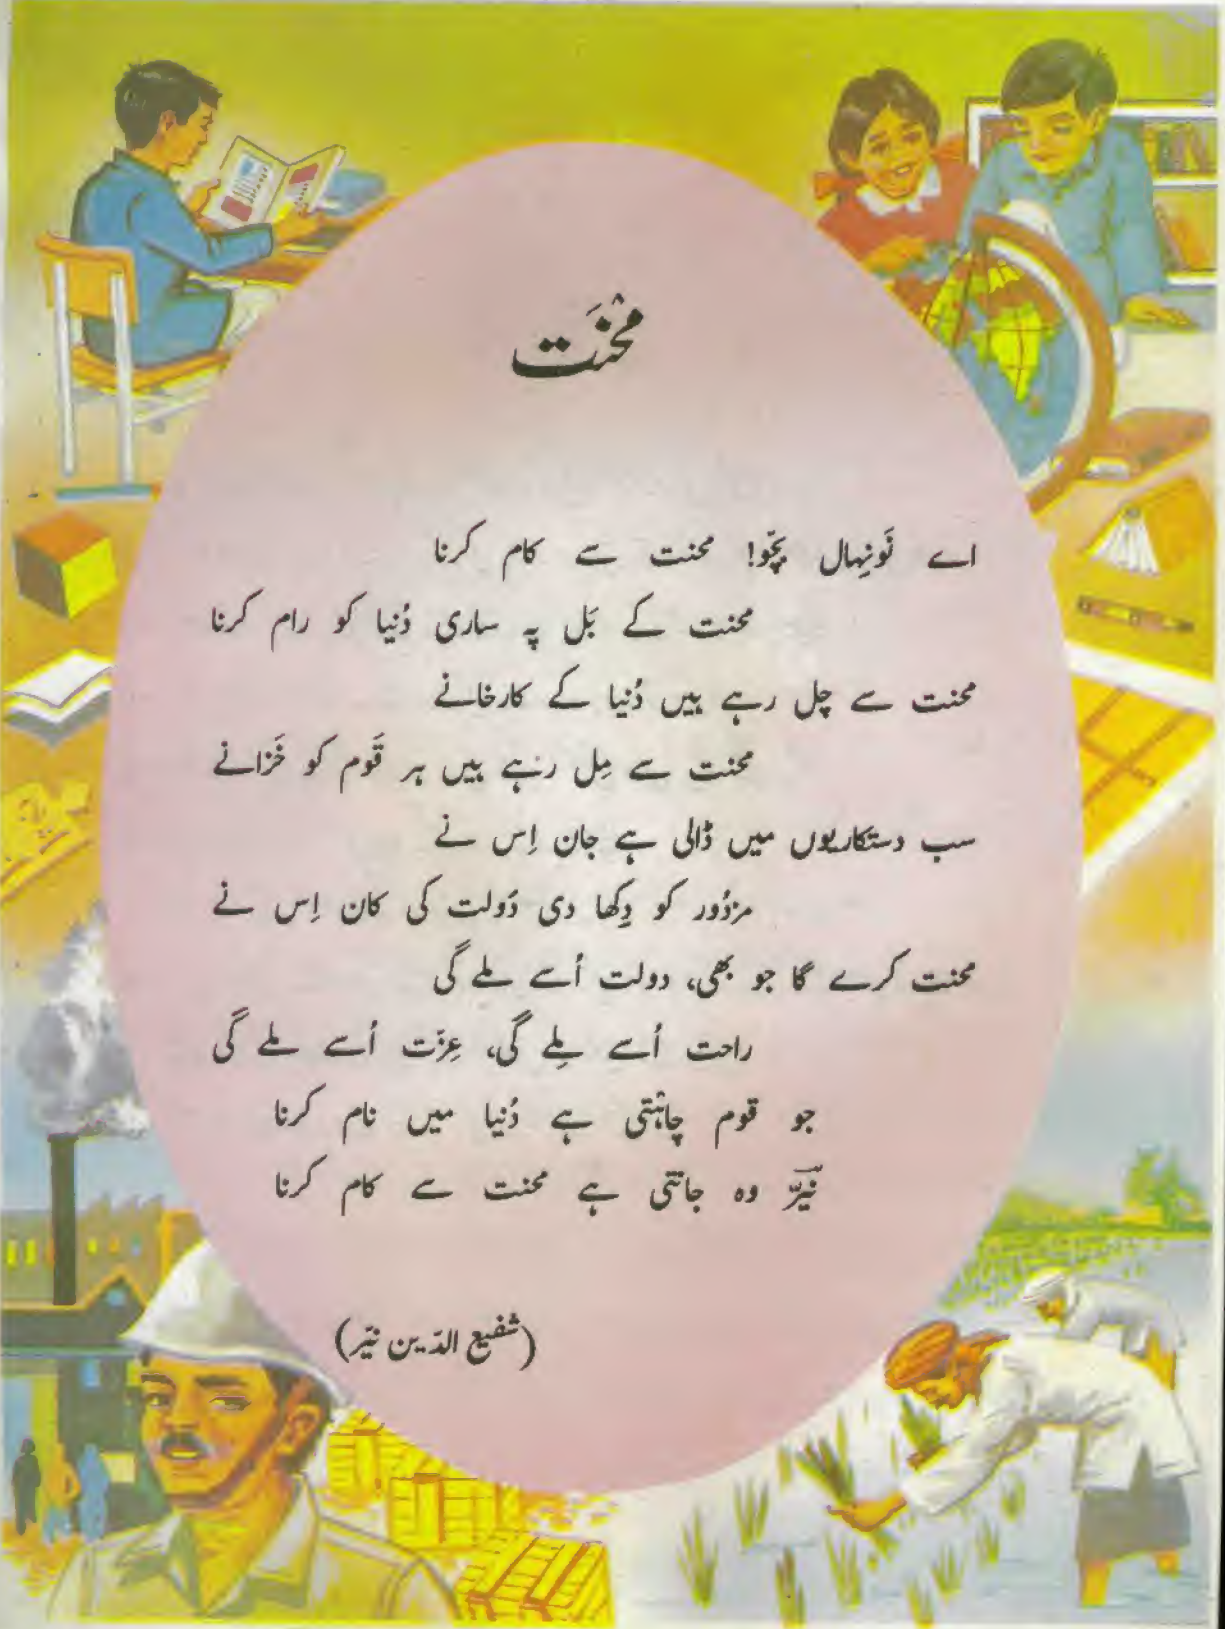 مِحْنَت
اے نَونِہال بچّو! محنت سے کام کرنا
محنت کے بَل پہ ساری دُنیا کو رام کرنا
محنت سے چل رہے ہیں دُنیا کے کارخانے
محنت سے مِل رہے ہیں ہر قَوم کو خَزانے
سب دستکاریوں میں ڈالی ہے جان اِس نے
مزدُور کو دِکھا دی دَولت کی کان اِس نے
محنت کرے گا جو بھی، دولت اُسے ملے گی
راحت اُسے مِلے گی، عِزّت اُسے ملے گی
جو قوم چاہْتی ہے دُنیا میں نام کرنا
نیّرؔ وہ جانتی ہے محنت سے کام کرنا
(شفیع الدّین نیّر)